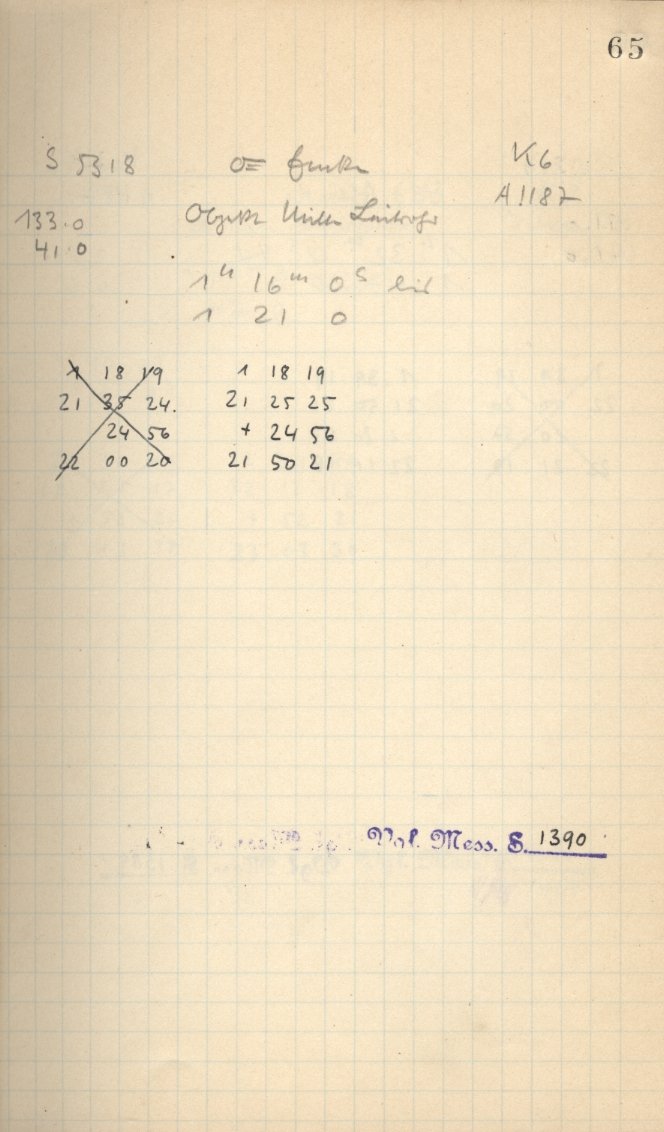 65
S 5318 K6
A1187
133.0 Objekt Mitte Leitrohr
41.0
1h 16m 0s bis
1 21 0
1 18 19 1 18 19
21 35 24. 21 25 25
24 56 + 24 56
22 00 20 21 50 21
Pol. Mess. S. 1390